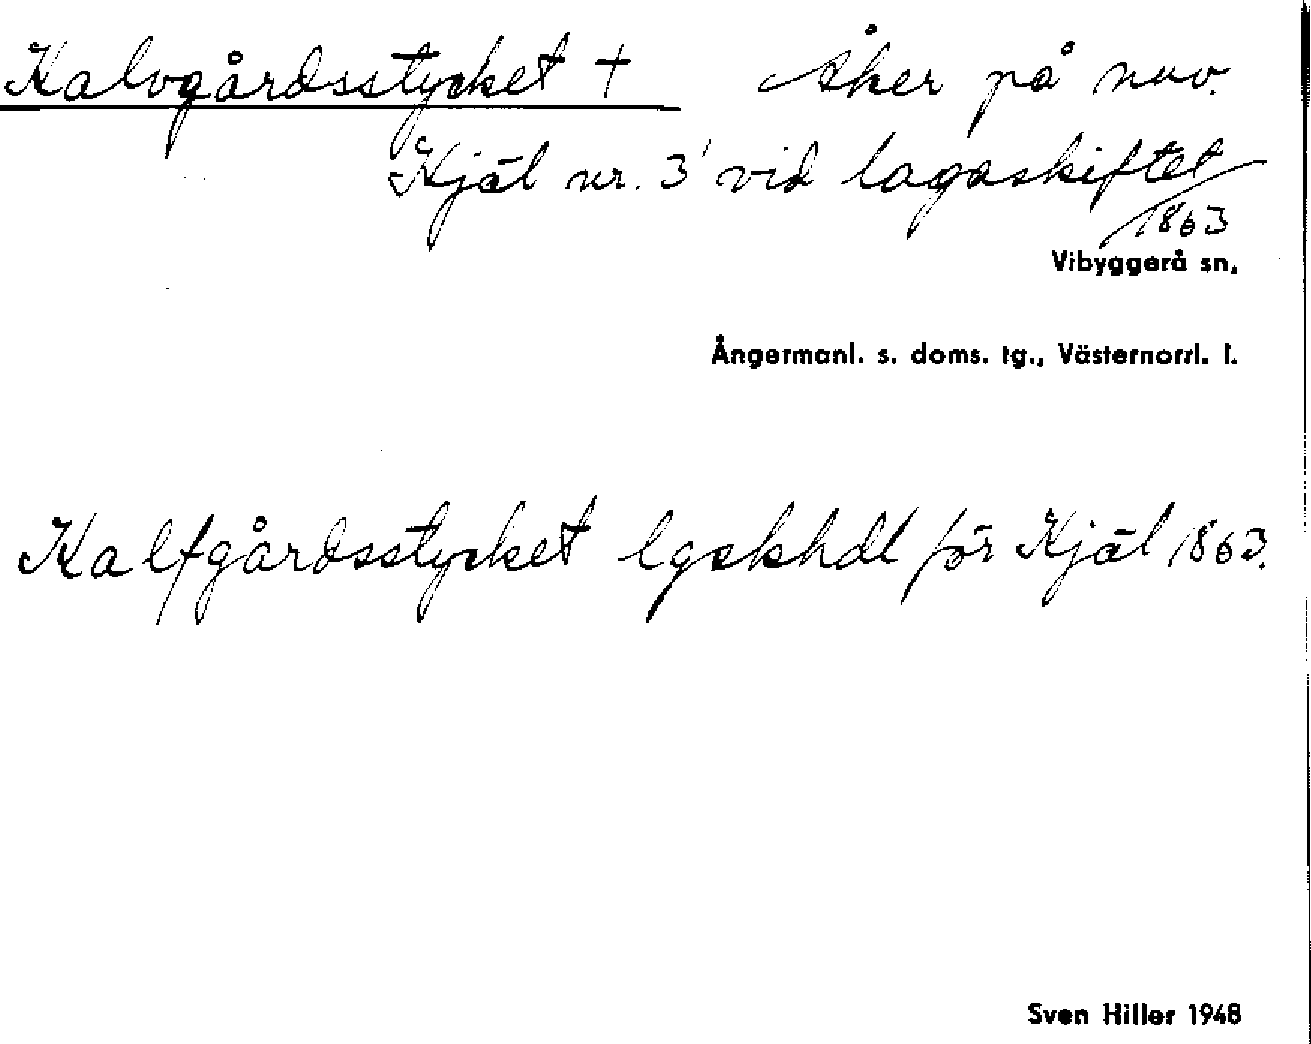 Kalvgårdsstycket + Åker på nuv.
Kjäl nr. 3' vid lagaskiftet
1863
Vibyggerå sn,
Ångermanl. s. doms. tg., Västernorrl. l.
Kalfgårdsstycket lgskhdl för Kjäl 1863.
Sven Hiller 1948